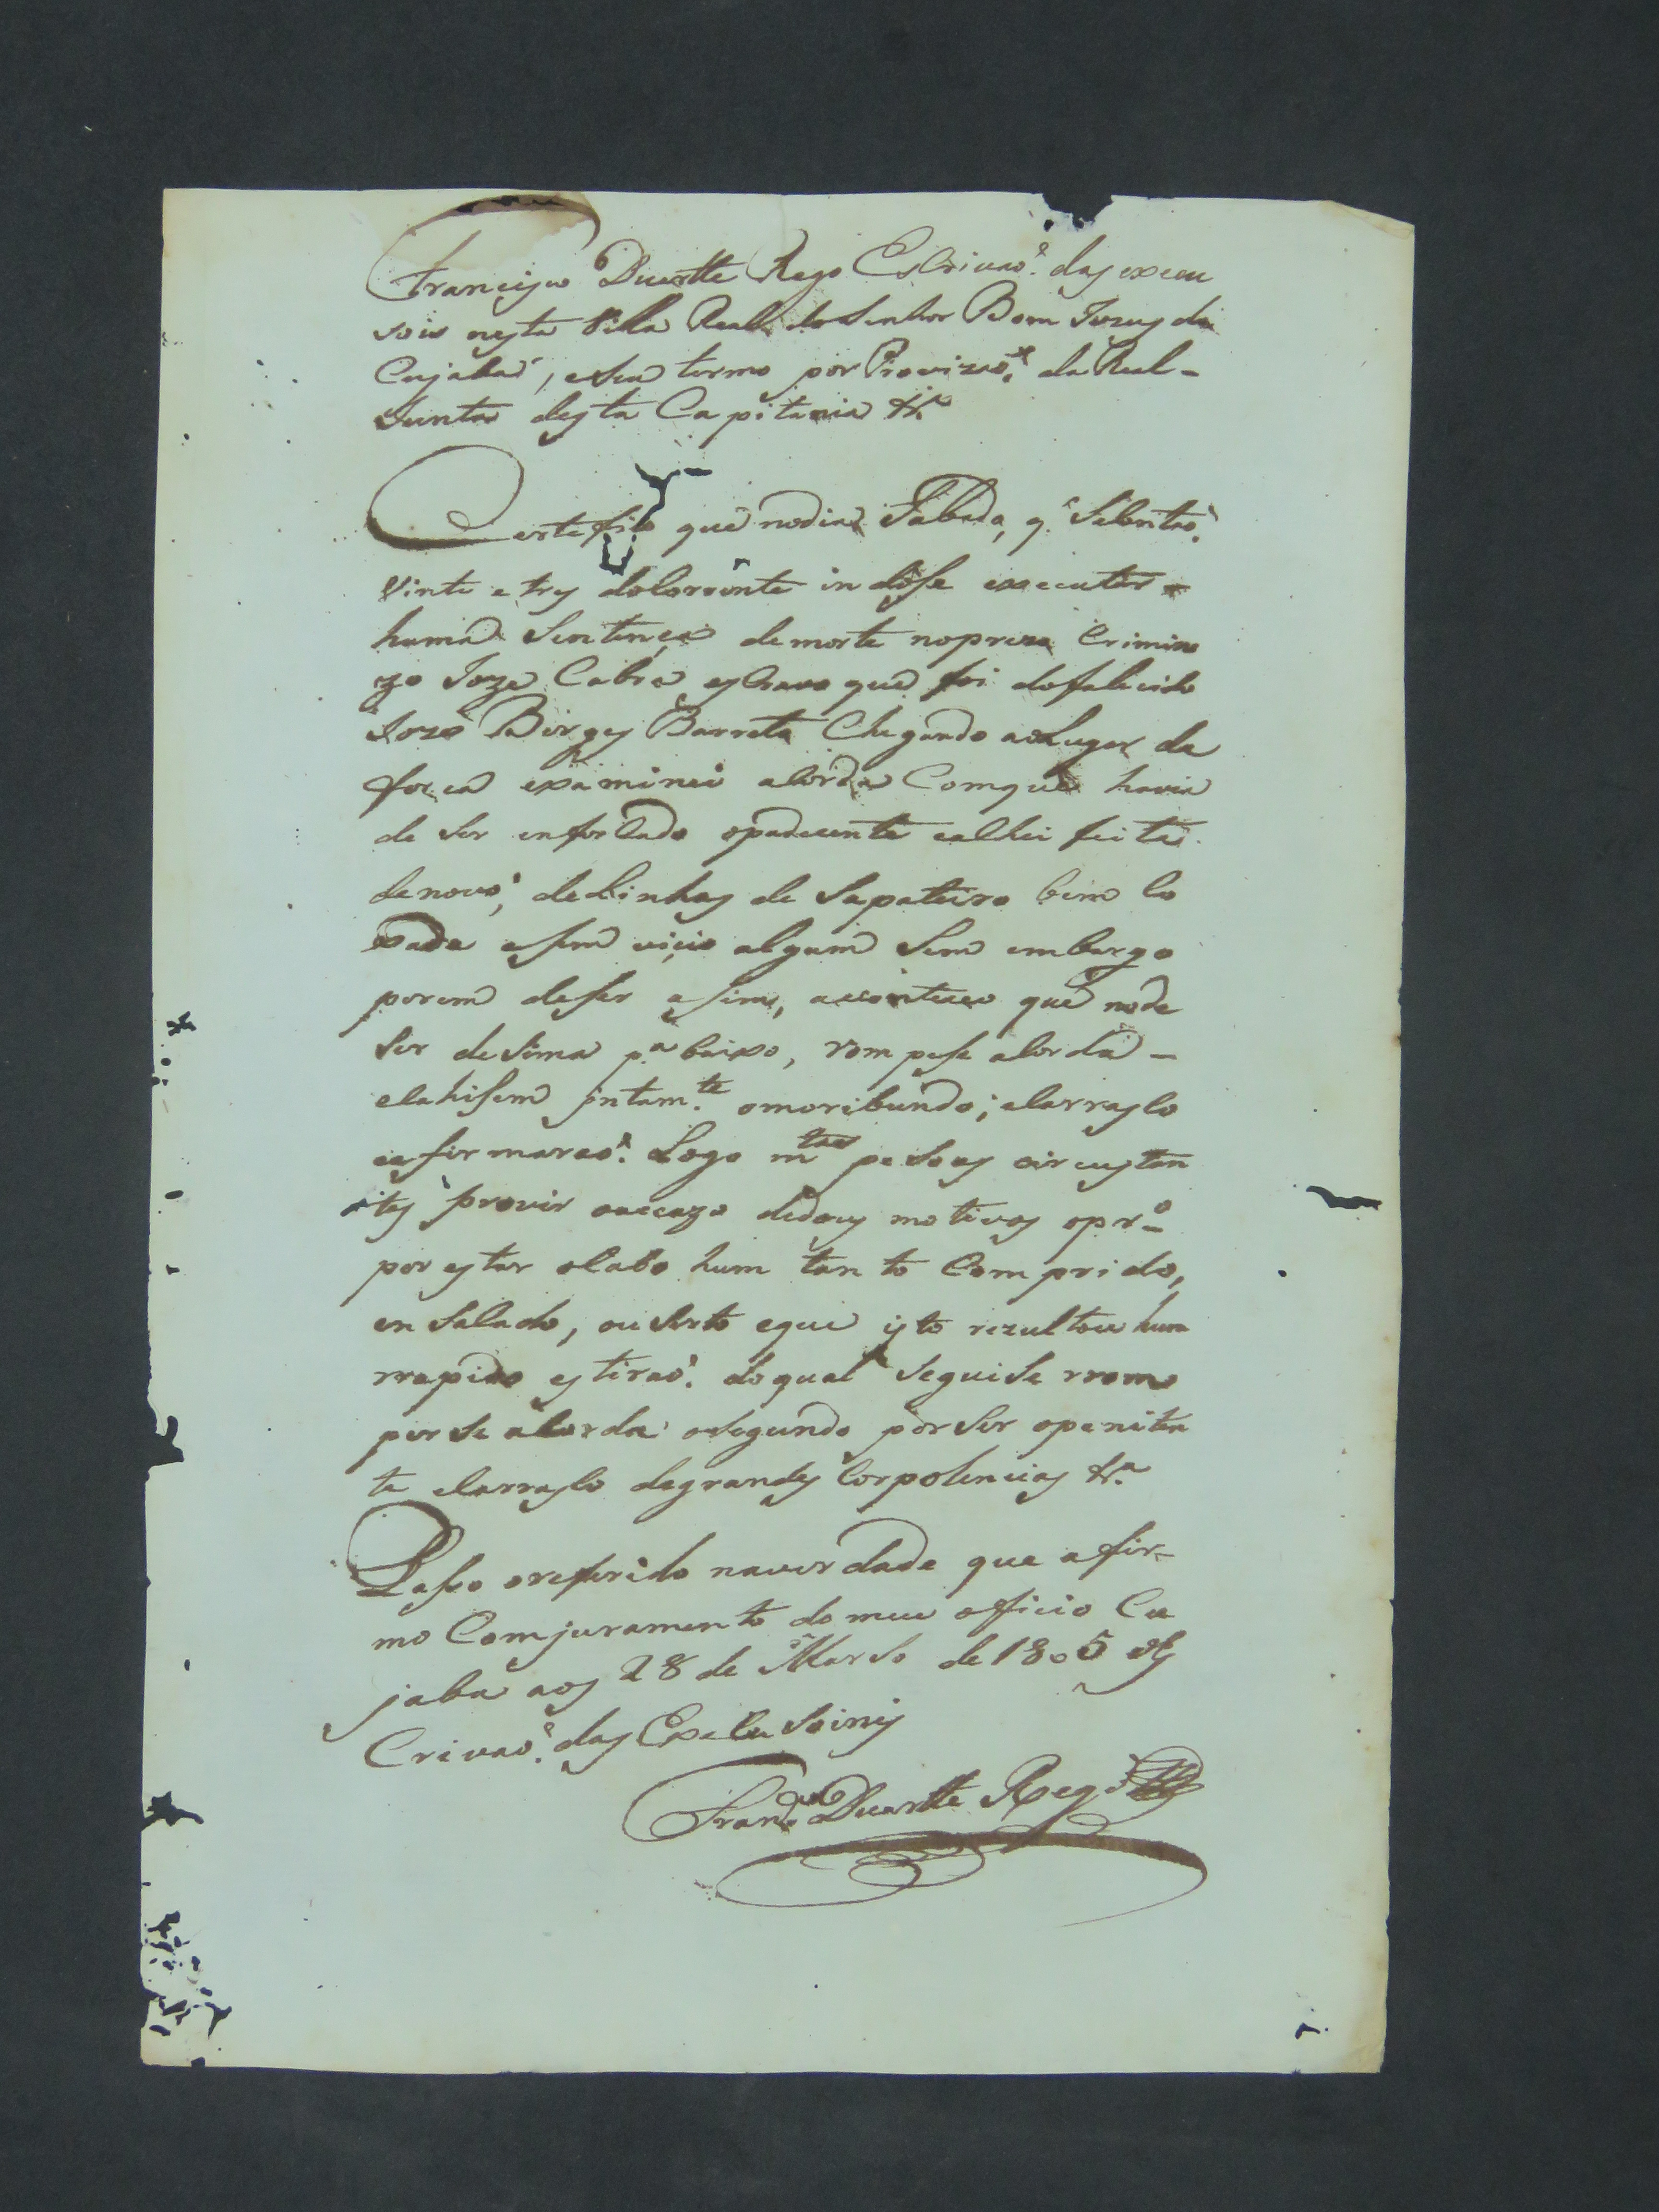 Francisco Duartte Rego Escrivaõ. das execu
sois nesta Villa Real do Senhor Bom Jezus do
Cujaba, e seu termo por Provizaõ. da Real-
Junta desta Capitania &.ª
Certefico que no dia Sabado, q. Secontaõ.
vinte e tres do Corrente indose executar
huma Sentença de morte no prezo Crimino
zo Joze Cabra escravo que foi do falecido
Joze Borges Barreto Chegando ao Lugar da
forca examinei a Corda Com que havia
de ser enforcado o padecente e achei feita
de novo, de Linhas de Sapateiro bem Co
xada e sem vicio algum Sem embargo
porem de ser asim, aconteceo que no de
Ser de Sima p.ª baixo, rompese a Corda -
e Cahisem jntam.te o moribundo; e Carrasco
e afirmaraõ. Logo m.tas pesoas circustan
tes provir o acazo de dous motivos o pr.º
por estar o Cabo hum tanto Comprido,
en Salado, ou Serto e que isto rezultou hum
rrapido estiraõ. do qual Seguise rrom
perse a Corda o segundo por Ser o peniten
te e Carrasco de grandes Corpolencias &.ª
Paso o referido na verdade que a fir-
mo Com juramento do meu oficio Cu
jaba aos 28 de Marso de 1805 es
Crivaõ. das Execu Soinis
Fran.co Duartte Rego